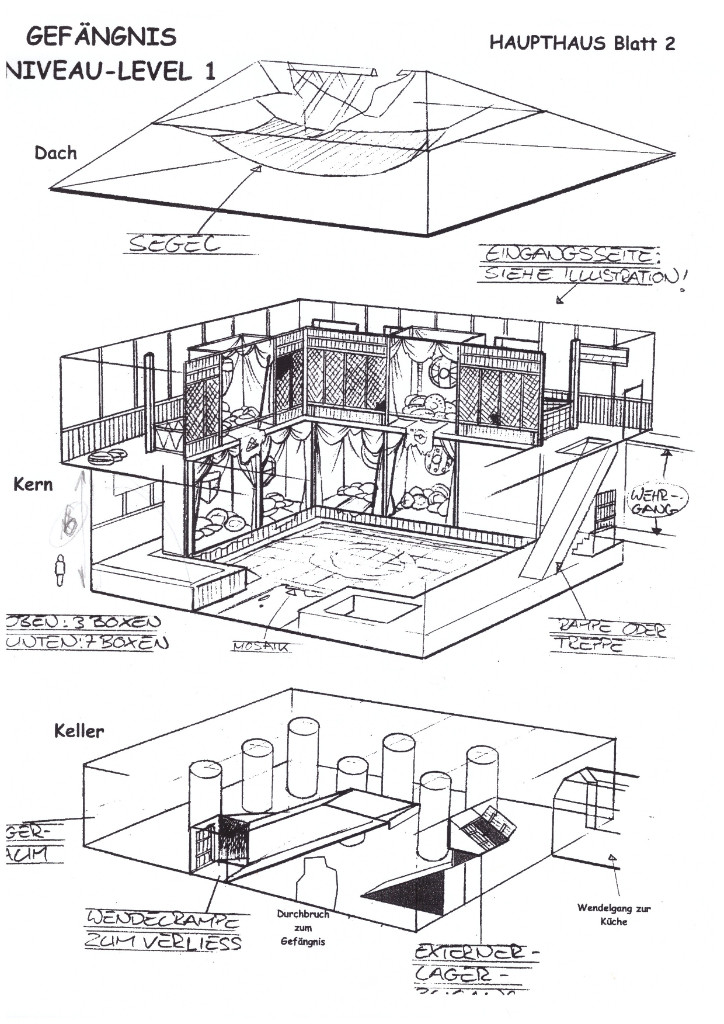 GEFÄNGNIS
NIVEAU-LEVEL 1
HAUPTHAUS Blatt 2
Dach
SEGEL
EINGANGSSEITE:
SIEHE ILLUSTRATION!
Kern
WEHR-
GANG
OBEN: 3 BOXEN
UNTEN: 7 BOXEN
MOSAIK
RAMPE ODER
TREPPE
Keller
GER-
AUM
WENDELRAMPE
ZUM VERLIESS
Durchbruch
zum
Gefängnis
Wendelgang zur
Küche
EXTERNER-
LAGER-